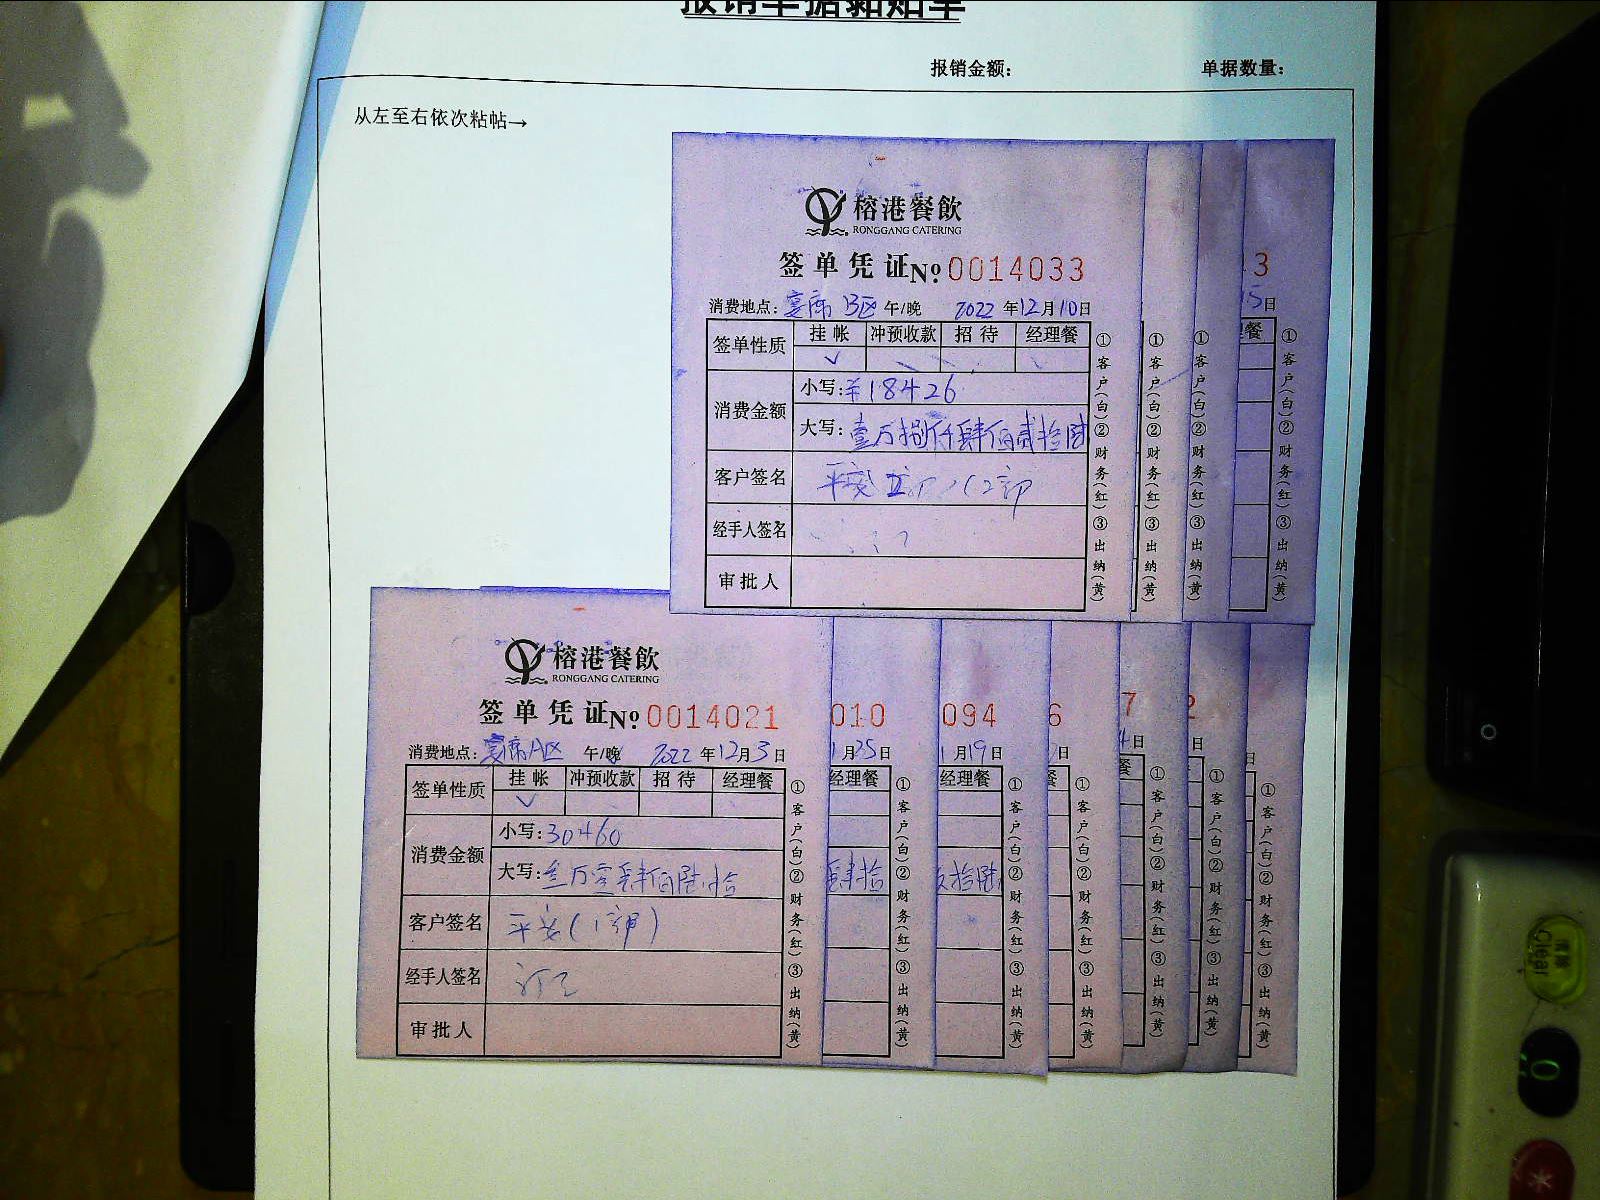 报销单据黏贴单
报销金额: 单据数量:
从左至右依次粘帖→
榕港餐飲
RONGGANG CATERING
签单凭证№ 0014033
消费地点: 宴席 B区 午/晚 2022 年 12 月 10 日
签单性质 挂帐 冲预收款 招待 经理餐
消费金额 小写: ¥18426
大写: 壹万捌仟肆佰贰拾陆
客户签名 平安
经手人签名
审批人
①客户(白)②财务(红)③出纳(黄)
①客户(白)②财务(红)③出纳(黄)
①客户(白)②财务(红)③出纳(黄)
3
15日
餐
①客户(白)②财务(红)③出纳(黄)
榕港餐飲
RONGGANG CATERING
签单凭证№ 0014021
消费地点: 宴席A区 午/晚 2022 年 12 月 3 日
签单性质 挂帐 冲预收款 招待 经理餐
消费金额 小写: 30460
大写: 叁万零肆佰陆拾
客户签名 平安(1部)
经手人签名
审批人
①客户(白)②财务(红)③出纳(黄)
010
月25日
经理餐
肆拾
①客户(白)②财务(红)③出纳(黄)
094
月19日
经理餐
拾陆
①客户(白)②财务(红)③出纳(黄)
6
日
餐
①客户(白)②财务(红)③出纳(黄)
7
4日
餐
①客户(白)②财务(红)③出纳(黄)
2
日
①客户(白)②财务(红)③出纳(黄)
①客户(白)②财务(红)③出纳(黄)
清除
Clear
0
*